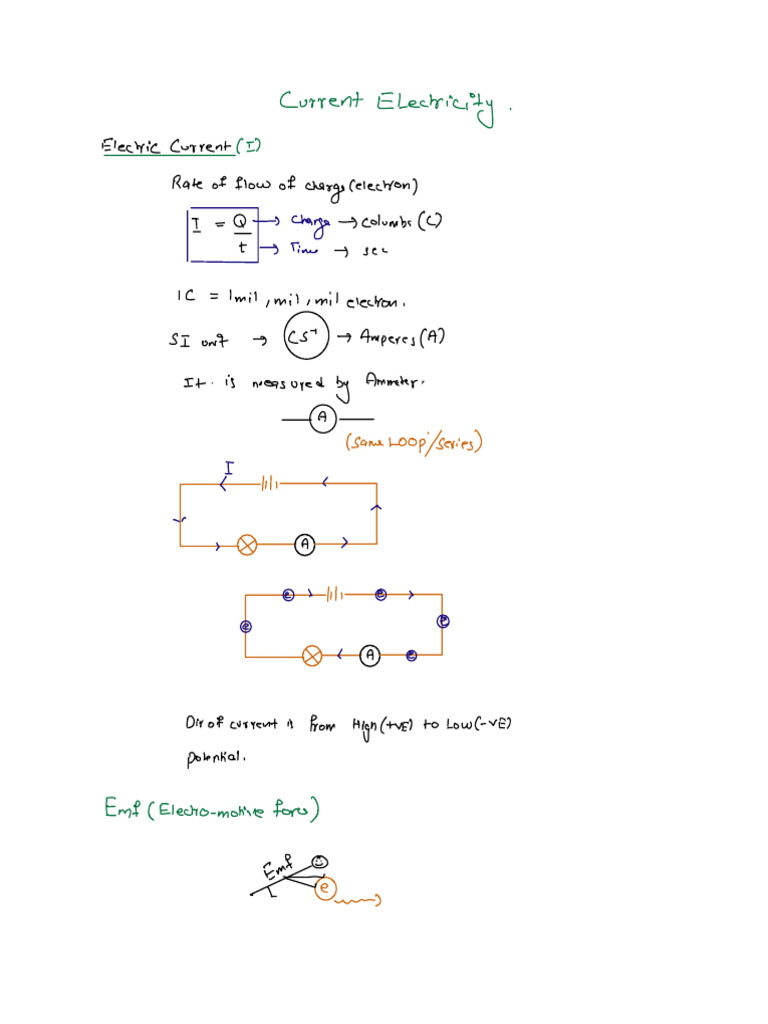 Current Electricity.
Electric Current (I)
Rate of flow of charge (electron)
I = Q/t
→ Charge → Columbs (C)
→ Time → sec
1C = 1mil, mil, mil electron.
SI unit → CS⁻¹ → Amperes (A)
It. is measured by Ammeter.
A
(Same Loop/series)
I
A
e e
e e
A e
Dir of current is from High (+vE) to Low (-vE)
potential.
Emf (Electro-motive force)
Emf
e